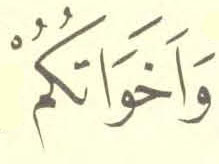 وَاَخَوَاتُكُمْ